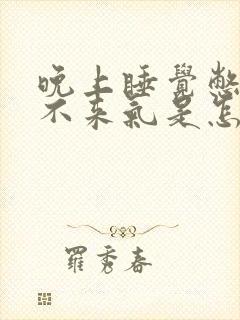 晚上睡覺憋
不來氣是怎
羅秀春